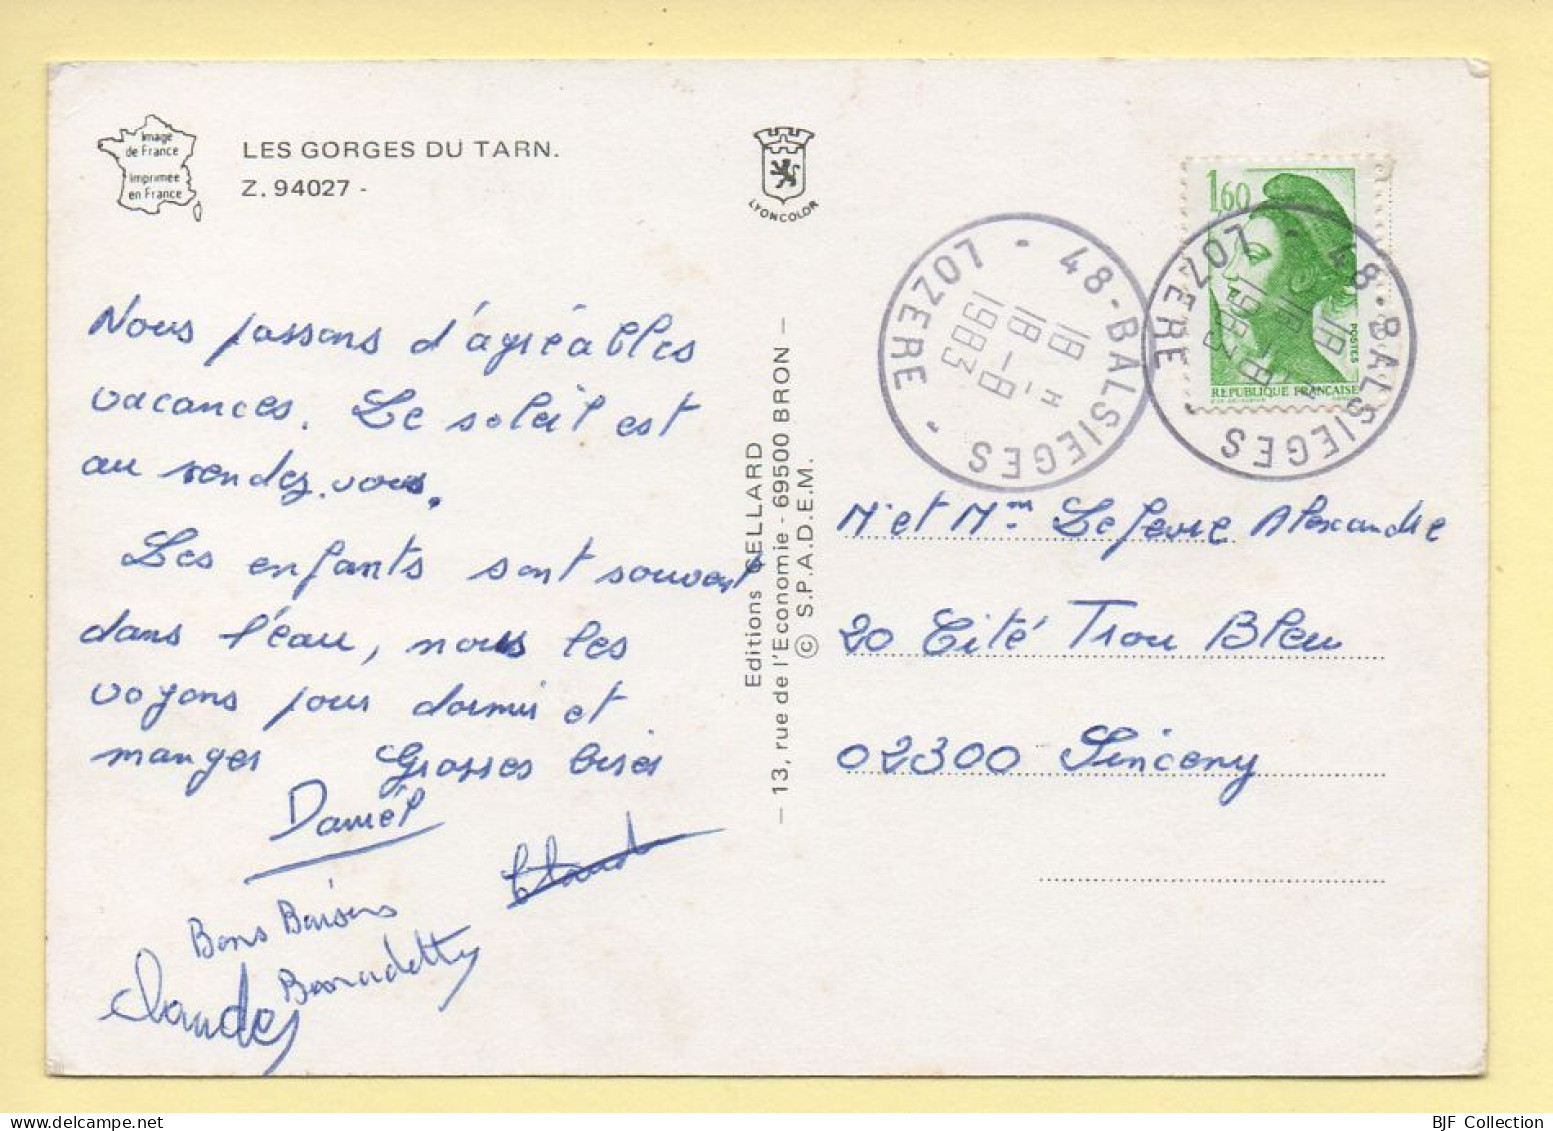 Image
de France
Imprimée
en France
LES GORGES DU TARN.
Z. 94027 -
LYONCOLOR
1,60
POSTES
REPUBLIQUE FRANÇAISE
48 - BALSIEGES - LOZERE -
18 H
18 - 8
1983
48 - BALSIEGES
LOZERE -
18 H
18 - 8
1983
Nous passons d'agréables
vacances. Le soleil est
au rendez.vous.
Les enfants sont souvent
dans l'eau, nous les
voyons pour dormir et
manger Grosses bises
Daniel
Bons Baisers
Bernadette
Claude
Editions CELLARD
- 13, rue de l'Economie - 69500 BRON -
© S.P.A.D.E.M.
Mr et Mm Lefevre Alexandre
20 Cité Trou Bleu
02300 Sinceny
BJF Collection